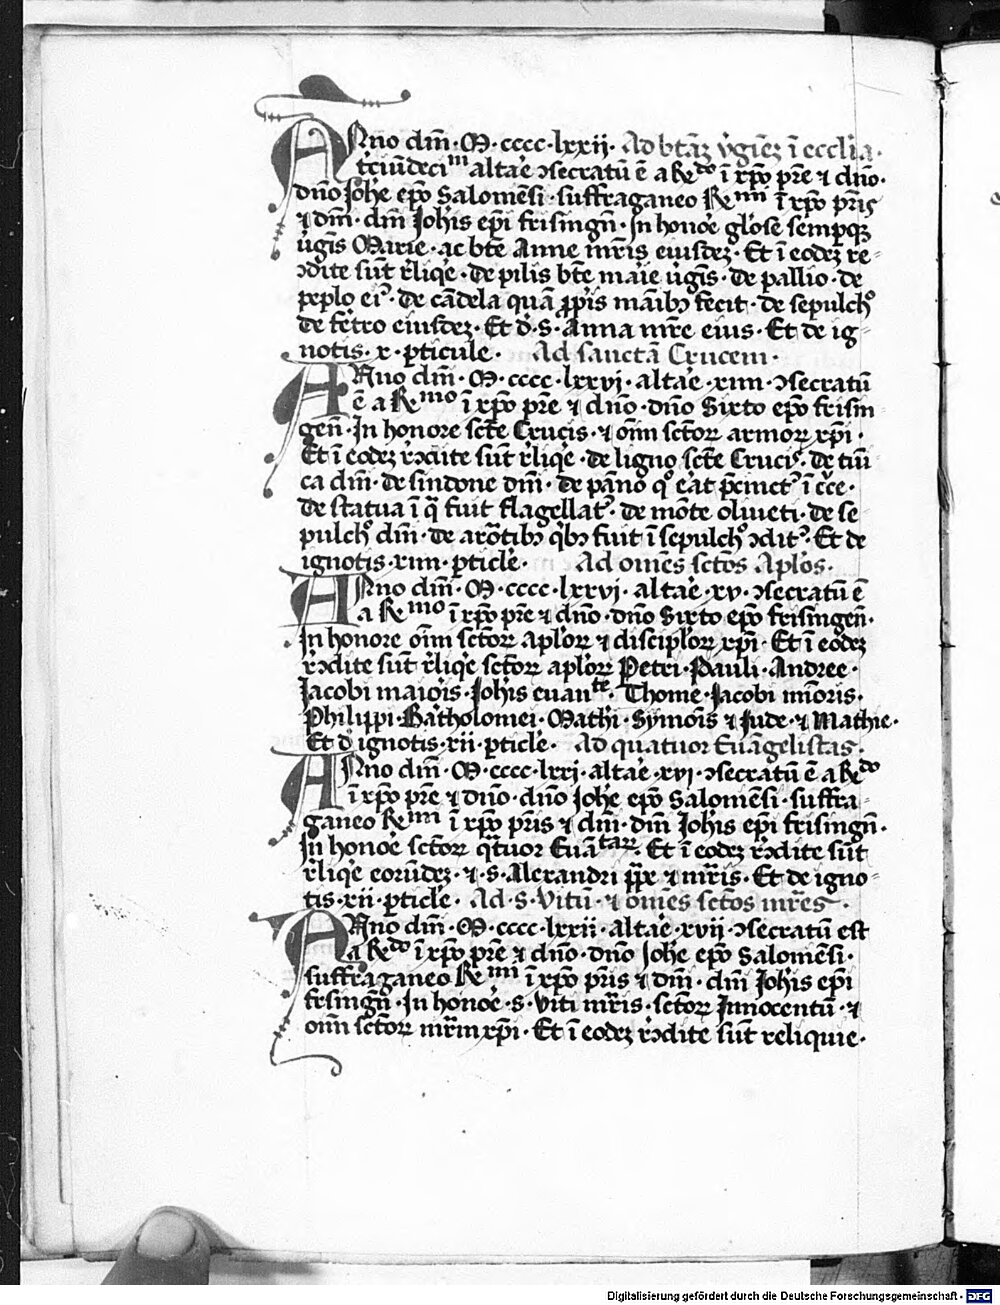 Anno dm̄·M·cccc·lxxii· Ad btāꝫ v̓giēꝫ ī ecclīa·
tciūdeciᵐ altar̄e ꝯsecratū ē a Reᵈᵒ ī xp̄o pr̄e ⁊ dn̄o·
dn̄o Joh̄e ep̄o Salomēsi·suffraganeo Reᵐⁱ ī xp̄o pr̄is
⁊ dm̄·dm̄ Joh̄is ep̄i frisingn̄·In honor̄e gl̄ose sempqꝫ
v̓gīs Marie·ac bt̄e Anne mr̄is eiusdeꝫ·Et ī eodeꝫ re-
ꝯdite sūt r̄liqꝛe·de pilis bt̄e mar̄ie v̓gīs·de pallio·de
peplo ei⁹·de cādela quā ꝓpr̄is māibꝫ fecit·de sepulchº
de fēretro eiusdeꝫ·Et d̓·S·Anna mr̄e eius·Et de ig-
notis·x·ꝑticule· Ad sanctā Crucem·
Anno dm̄·M·cccc·lxxvj·altar̄e·xiiii·ꝯsecratū
ē a Reᵐᵒ ī xp̄o pr̄e ⁊ dn̄o·dn̄o Sixto ep̄o frisin
gen̄·In honore sctē Crucis·⁊ om̄ sctōꝝ armoꝝ xp̄i·
Et ī eodeꝫ rꝯdite sūt r̄liqꝛe·de ligno sctē Crucis·de tūi
ca dm̄·de sindone dm̄·de pāno qº er̄at p̄cinct⁹ ī cr̄ce·
de statua ī q̄ fuit flagellat⁹·de mōte oliueti·de se
pulchº dm̄·de arōtibꝫ qⁱbꝫ fuit ī sepulchº ꝯdit⁹·Et de
ignotis·xiiii·ꝑticle· Ad omēs sctōs Aplōs·
Anno dm̄·M·cccc·lxxvj·altar̄e·xv·ꝯsecratū ē
a Reᵐᵒ ī xp̄o pr̄e ⁊ dn̄o·dn̄o Sixto ep̄o frisingen̄·
In honore om̄ sctōꝝ aplōꝝ ⁊ disciplōꝝ xp̄i·Et ī eodeꝫ
rꝯdite sūt r̄liqꝛe sctōꝝ aplōꝝ Petri·Pauli·Andree·
Jacobi maioris·Joh̄is euanᵗᵉ·Thome·Jacobi mīoris·
Philippi·Bar̄tholomei·Mathi·Symoīs ⁊ Jude·⁊ Mathie·
Et d̓ ignotis·xii·ꝑticle· Ad quatuor Euāgelistas·
Anno dm̄·M·cccc·lxxj·altar̄e·xvj·ꝯsecratū ē a Reᵈᵒ
ī xp̄o pr̄e ⁊ dn̄o·dn̄o Joh̄e ep̄o Salomēsi·suffra-
ganeo Reᵐⁱ ī xp̄o pr̄is ⁊ dm̄·dm̄ Joh̄is ep̄i frisingn̄·
In honor̄e sctōꝝ qᵃtuor Euāᵗᵃꝝ·Et ī eodeꝫ rꝯdite sūt
r̄liqꝛe eorūdeꝫ·⁊·S·Alexandri pp̄e ⁊ mr̄is·Et de igno-
tis·xii·ꝑticle· Ad·S·Vitū·⁊ omēs sctōs mr̄es·
Anno dm̄·M·cccc·lxxii·altar̄e·xvii·ꝯsecratū est
a Reᵈᵒ ī xp̄o pr̄e ⁊ dn̄o·dn̄o Joh̄e ep̄o Salomēsi·
suffraganeo Reᵐⁱ ī xp̄o pr̄is ⁊ dm̄·dm̄ Joh̄is ep̄i
frisingn̄·In honor̄e·S·Viti mr̄is·sctōꝝ Innocentū·⁊
om̄ sctōꝝ mr̄m xp̄i·Et ī eodeꝫ rꝯdite sūt reliquie·
Digitalisierung gefördert durch die Deutsche Forschungsgemeinschaft - DFG